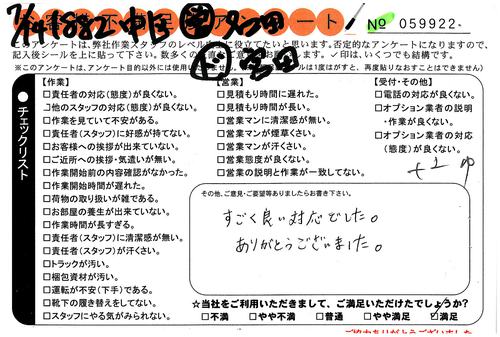 7/14 1882
アンケート
№ 059922
このアンケートは、弊社作業スタッフのレベル向上に役立てたいと思います。否定的なアンケートになりますので、
記入後シールを上に貼って下さい。
✓印は、いくつでも結構です。
宮田
チェックリスト
【作業】
□責任者の対応(態度)が良くない。
□他のスタッフの対応(態度)が良くない。
□作業を見ていて不安がある。
□責任者(スタッフ)に好感が持てない。
□お客様への挨拶が出来ていない。
□ご近所への挨拶・気遣いが無い。
□作業開始前の内容確認がなかった。
□作業開始時間が遅れた。
□荷物の取り扱いが雑である。
□お部屋の養生が出来ていない。
□作業時間が長すぎる。
□責任者(スタッフ)に清潔感が無い。
□責任者(スタッフ)が汗くさい。
□トラックが汚い。
□梱包資材が汚い。
□運転が不安(下手)である。
□靴下の履き替えをしてない。
□スタッフにやる気がみられない。
【営業】
□見積もり時間に遅れた。
□見積もり時間が長い。
□営業マンに清潔感が無い。
□営業マンが煙草くさい。
□営業マンが汗くさい。
□営業態度が良くない。
□営業の説明と作業が一致してない。
【受付・その他】
□電話の対応が良くない。
□オプション業者の説明
・作業が良くない。
□オプション業者の対応
(態度)が良くない。
その他、ご意見・ご要望等ありましたらお書き下さい。
すごく良い対応でした。
ありがとうございました。
☆当社をご利用いただきまして、ご満足いただけたでしょうか?
□不満 □やや不満 □普通 □やや満足 ☑満足
ご協力ありがとうございました